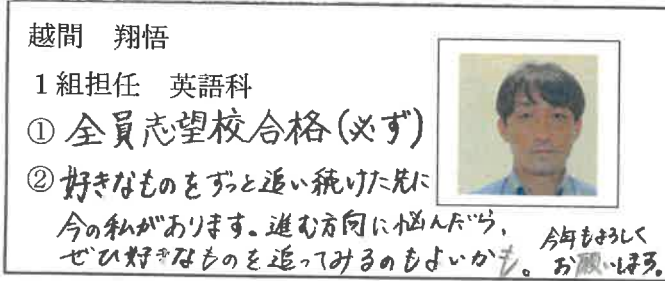 越間　翔悟
１組担任　英語科
① 全員志望校合格(必ず)
② 好きなものをずっと追い続けた先に
今の私があります。進む方向に悩んだら、
ぜひ好きなものを追ってみるのもよいかも。
今年もよろしく
お願いします。